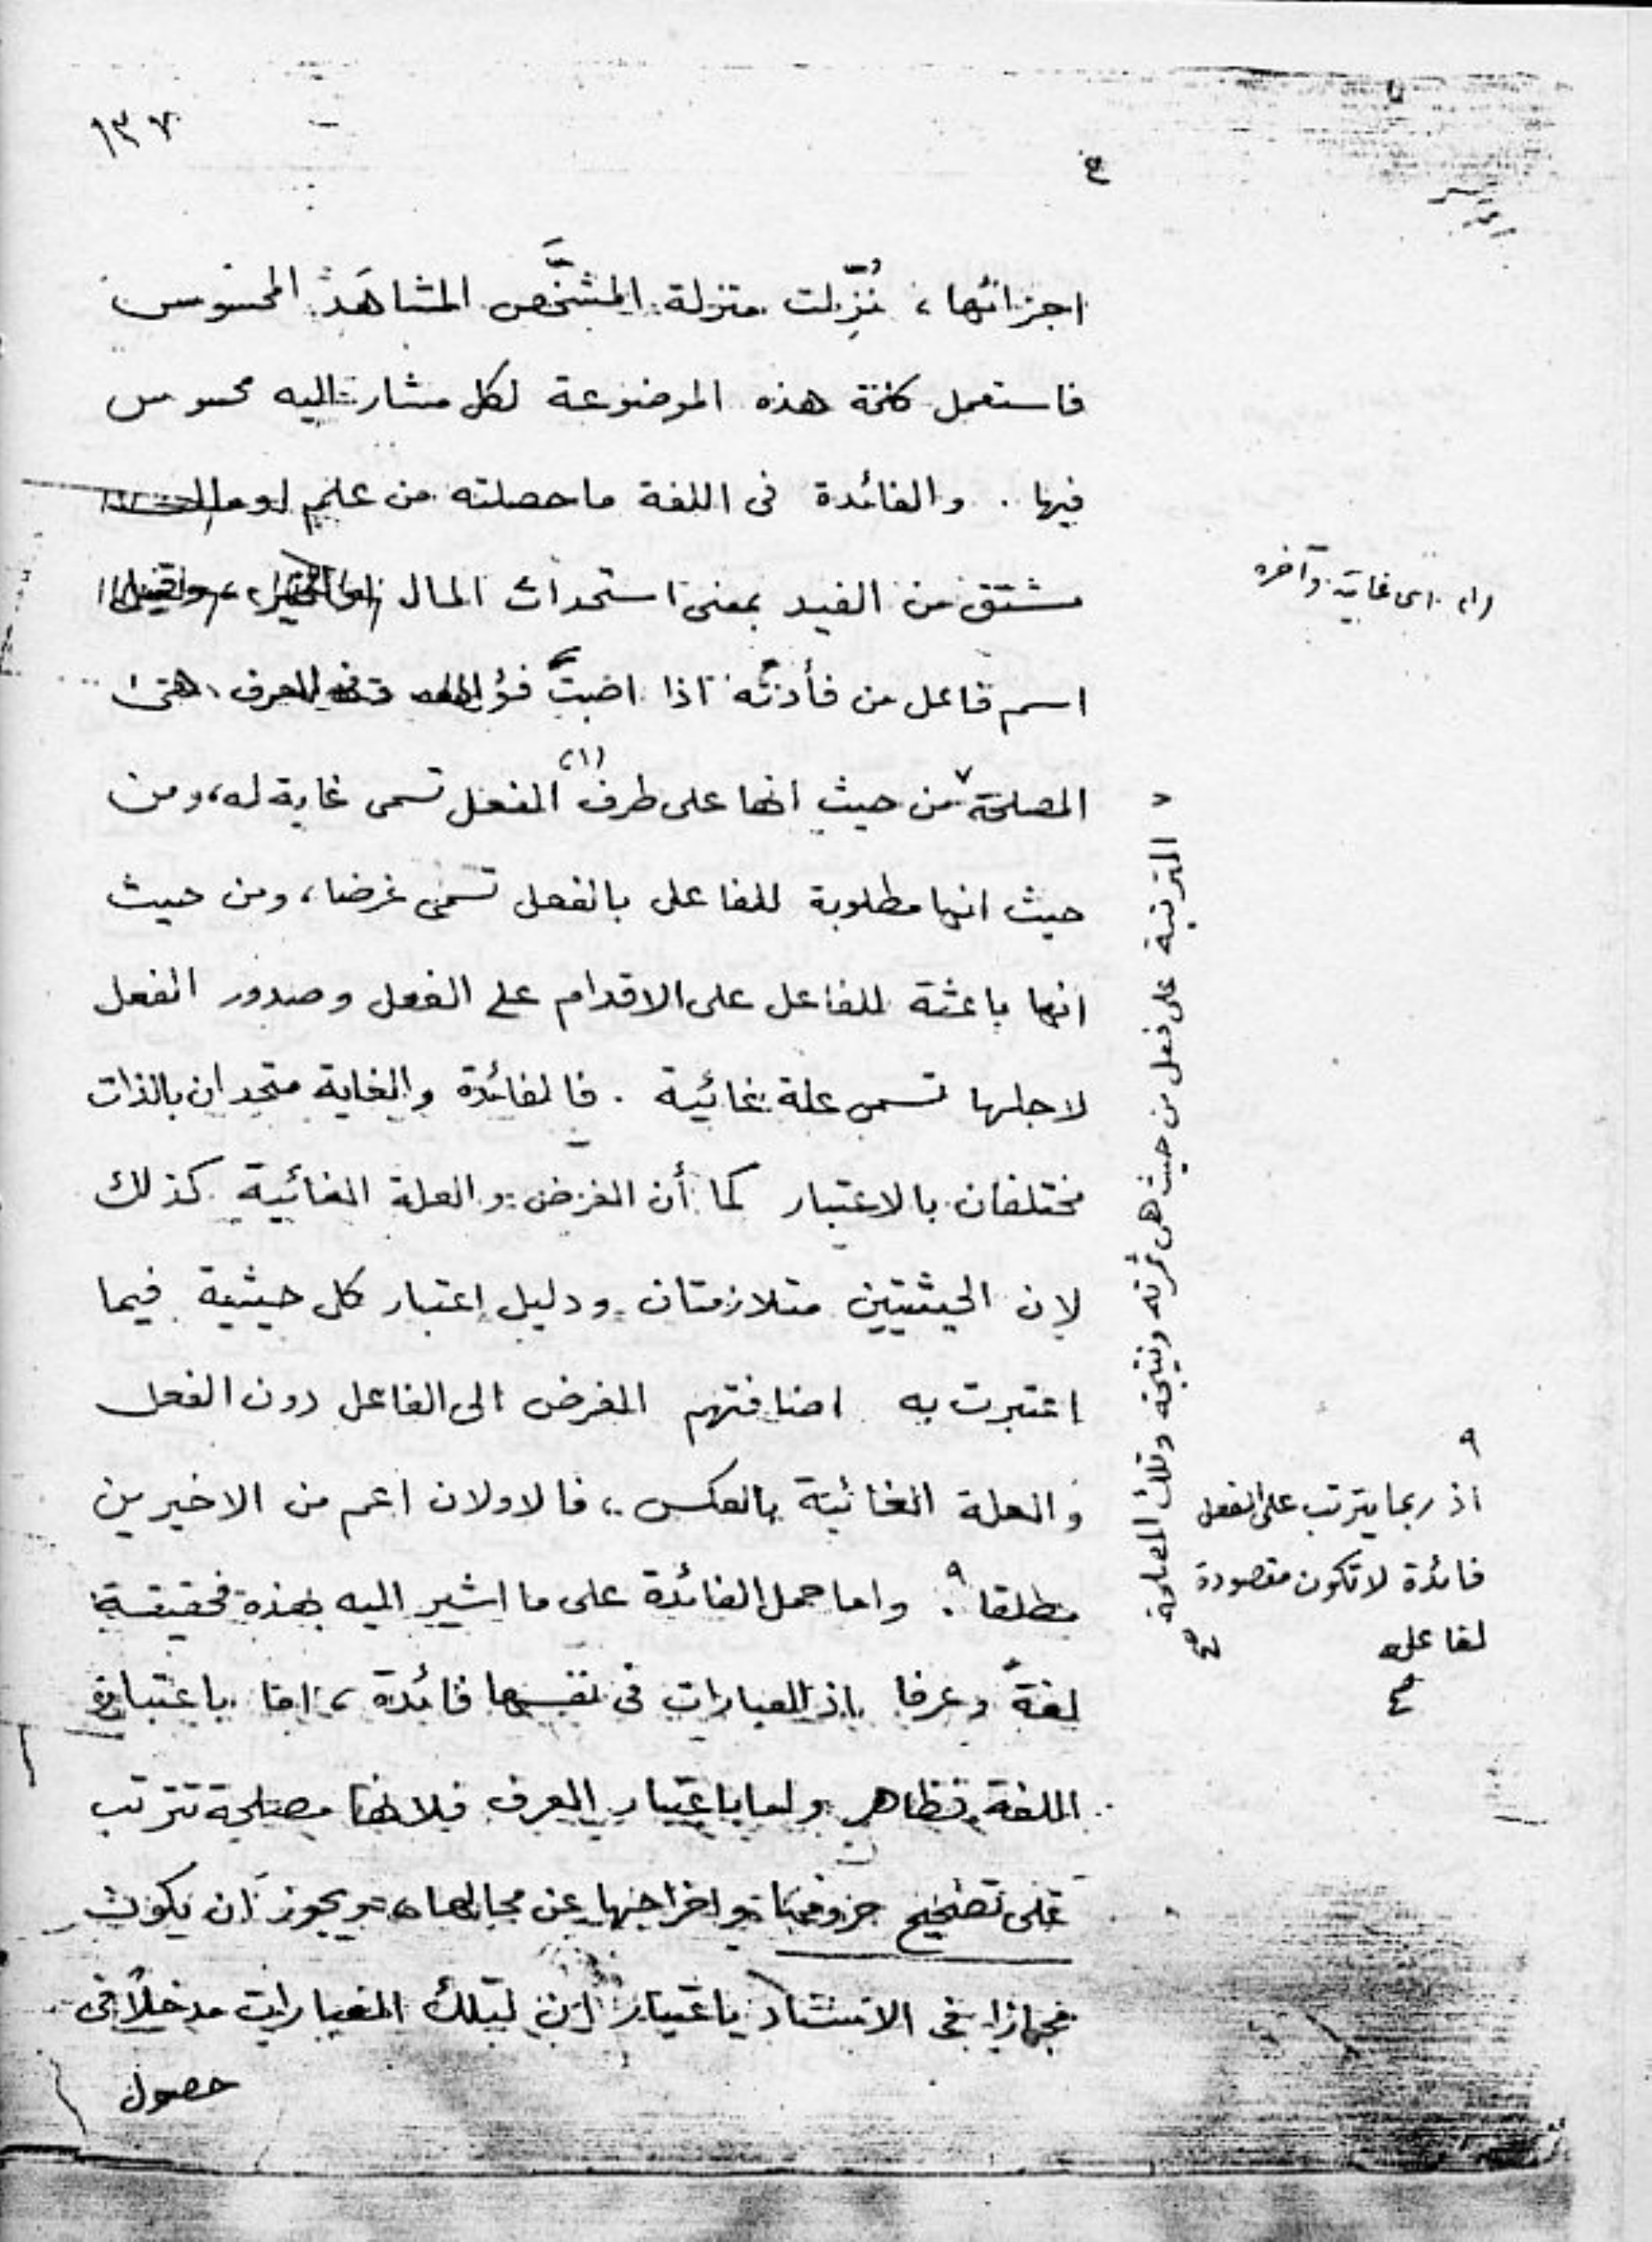 ١٣٧
٤
اجزائها ، نُزِّلت منزلة المشخَّص المشاهَد المحسوس
فاستعمل كلمة هذه الموضوعة لكل مشار اليه محسوس
فيها . والفائدة فى اللغة ما حصلته من علم او مال
مشتق من الفيد بمعنى استحداث المال
اسم فاعل من فأدتُه اذا اصبتَ فؤاده العرف هى
المصلحة ٧ من حيث انها على طرف (١) الفعل تسمى غاية له، ومن
حيث انها مطلوبة للفاعل بالفعل تسمى غرضا ، ومن حيث
انها باعثة للفاعل على الاقدام على الفعل وصدور الفعل
لاجلها تسمى علة غائية . فالفائدة والغاية متحدان بالذات
مختلفان بالاعتبار كما أن الغرض والعلة الغائية كذلك
لان الحيثيتين متلازمتان ودليل اعتبار كل حيثية فيما
اعتبرت به اضافتهم الغرض الى الفاعل دون الفعل
والعلة الغائية بالعكس ، فالاولان اعم من الاخيرين
مطلقا ٩ . واما حمل الفائدة على ما اشير اليه بهذه فحقيقة
لغةً وعرفا اذ العبارات فى نفسها فائدة ، اما باعتبار
اللغة فظاهر واما باعتبار العرف فلانها مصلحة تترتب
على تصحيح حروفها واخراجها عن مجالها ويجوز ان يكون
مجازا فى الاسناد باعتبار ان لتلك العبارات مدخلاً فى
حصول
(١) اى غايته وآخره
٧ المترتبة على فعل من حيث هى ثمرته ونتيجته وتلك المصلحة
٩
اذ ربما يترتب على الفعل
فائدة لا تكون مقصودة
لفاعله